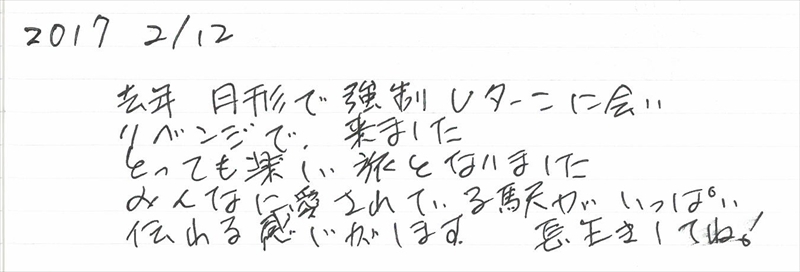 2017 2/12
去年 月形で強制Uターンに会い
リベンジで、来ました
とっても楽しい旅となりました
みんなに愛されている駅がいっぱい
伝わる感じがします 長生きしてね!